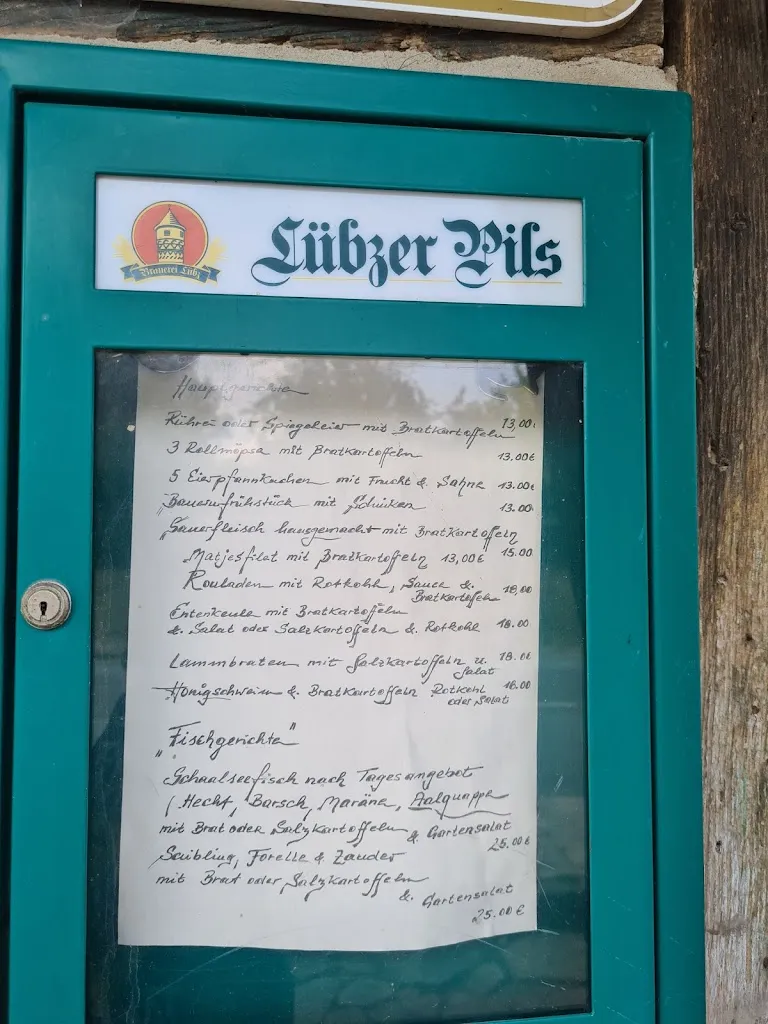 Brauerei Lübz
Lübzer Pils
Hauptgerichte
Rührei oder Spiegeleier mit Bratkartoffeln 13,00
3 Rollmöpse mit Bratkartoffeln 13,00€
5 Eierpfannkuchen mit Frucht & Sahne 13.00€
„Bauernfrühstück mit Schinken 13.00
„Sauerfleisch hausgemacht mit Bratkartoffeln
15.00
„Matjesfilet mit Bratkartoffeln 13,00€
Rouladen mit Rotkohl, Sauce &
Bratkartoffeln 18,00
Entenkeule mit Bratkartoffeln
&. Salat oder Salzkartoffeln &. Rotkohl 18.00
Lammbraten mit Salzkartoffeln u. 18.00
Salat
Honigschwein &. Bratkartoffeln Rotkohl 18.00
oder Salat
„Fischgerichte"
Schaalseefisch nach Tagesangebot
(Hecht, Barsch, Maräne, Aalquappe
mit Brat oder Salzkartoffeln & Gartensalat
25.00€
Saibling, Forelle & Zander
mit Brat oder Salzkartoffeln
&. Gartensalat
25.00€